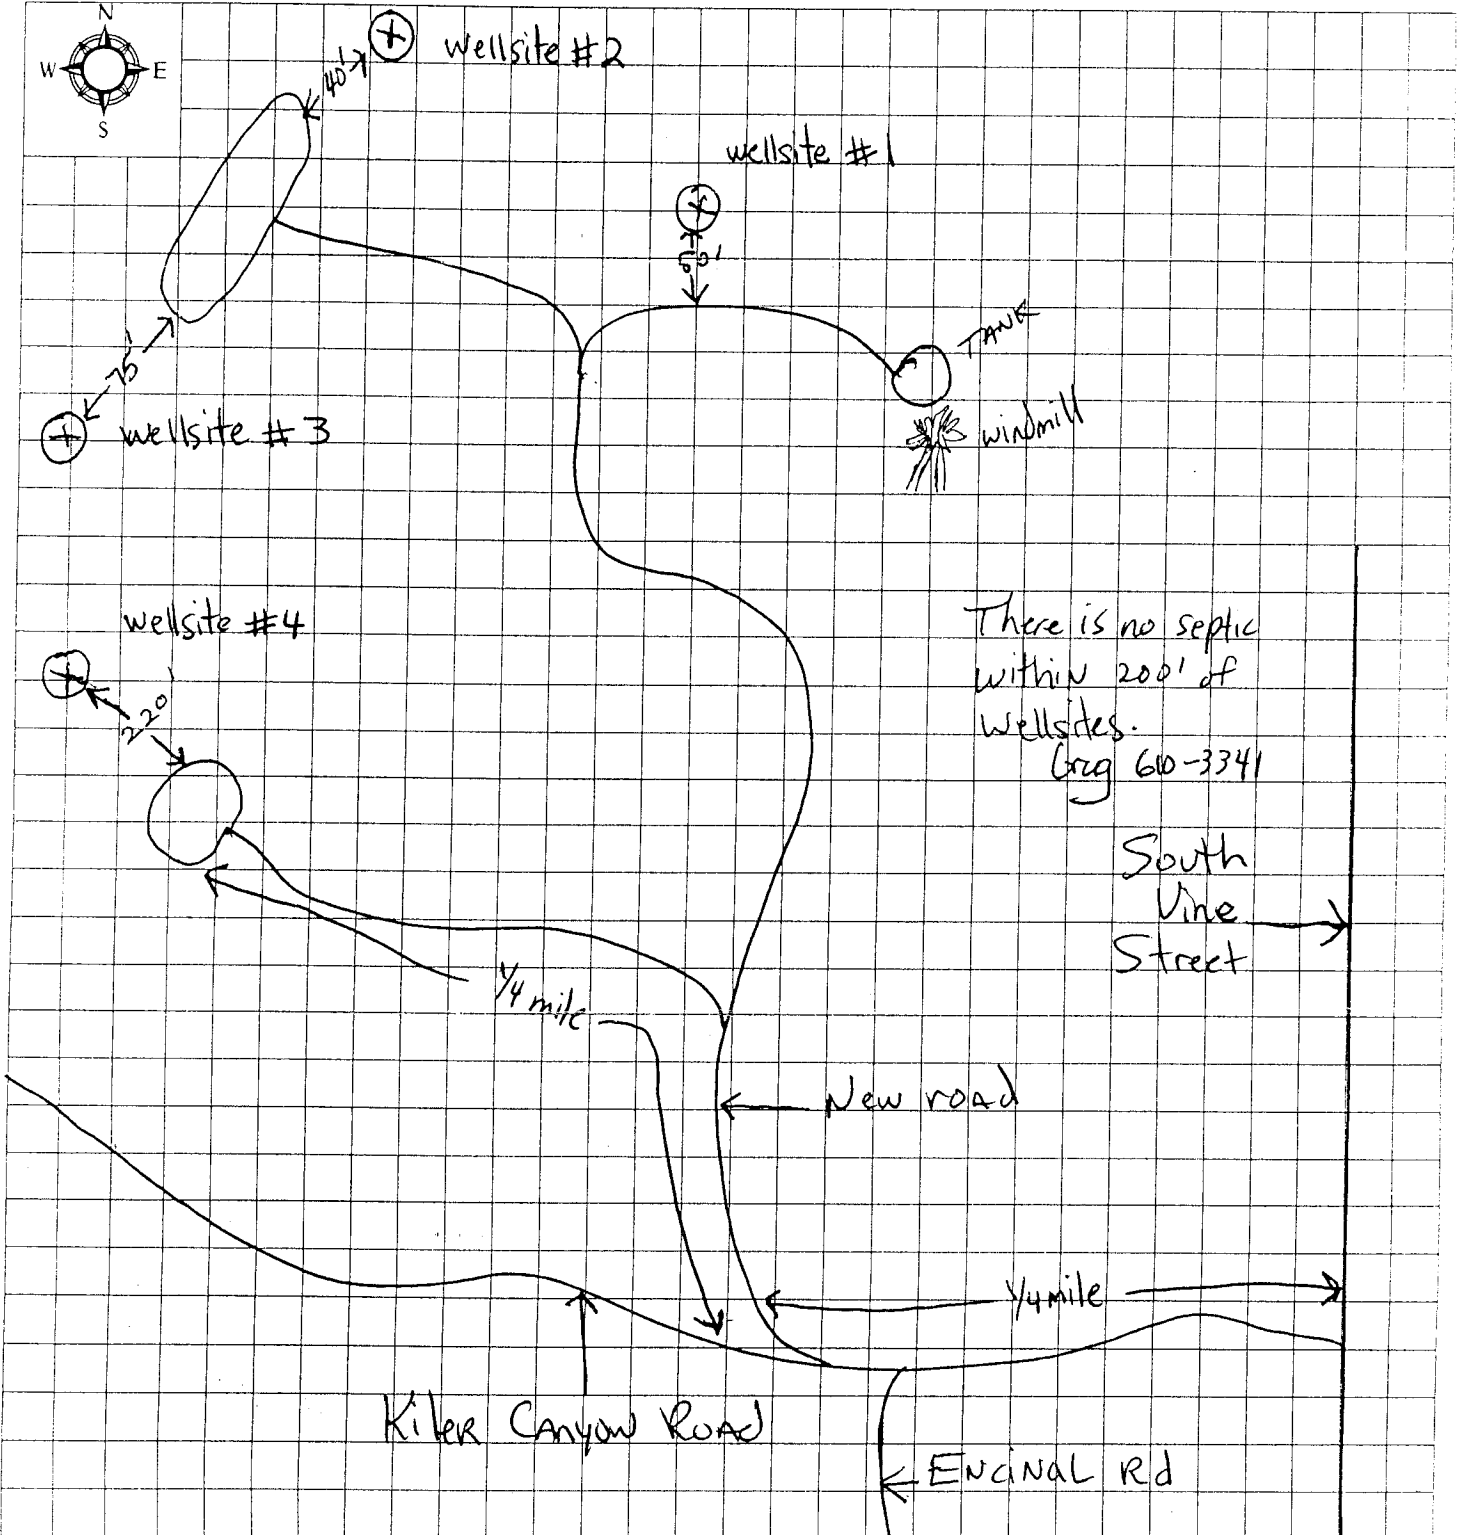 N
W E
S
wellsite #2
40'
wellsite #1
60'
TANK
windmill
75'
wellsite #3
wellsite #4
220'
There is no septic
within 200' of
wellsites.
Greg 610-3341
South
Vine
Street
1/4 mile
New road
1/4 mile
Kiler Canyon Road
Encinal Rd